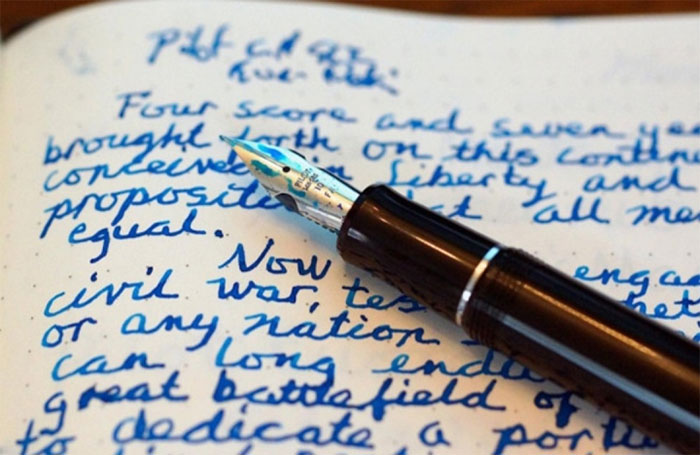 Four score and seven ye
brought forth on this contin
conceived in liberty and
propositi that all me
equal.
Now enga
civil war, tes het
or any nation
can long endu
great battlefield of
to dedicate a porti